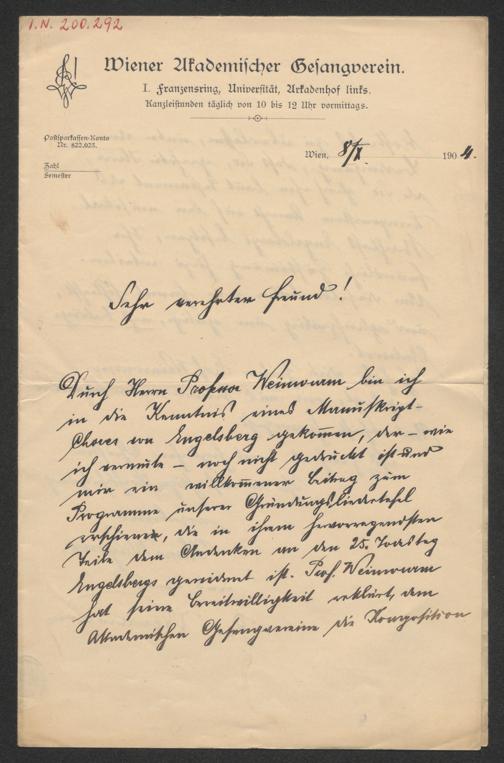 I.N. 200.292
Wiener Akademischer Gesangverein.
I. Franzensring, Universität, Arkadenhof links.
Kanzleistunden täglich von 10 bis 12 Uhr vormittags.
Postsparkassen-Konto
Nr. 822.025.
Zahl
Semester
Wien, 8/X. 1904.
Sehr verehrter Freund!
Durch Herrn Professor Weinwurm bin ich
in die Kenntnis eines Manuskript-
Chores von Engelsberg gekommen, der – wie
ich vermute – noch nicht gedruckt ist und
mir ein willkommener Beitrag zum
Programme unserer Gründungsliedertafel
erschiene, die in ihrem hervorragendsten
Teile dem Andenken an den 25. Todestag
Engelsbergs gewidmet ist. Prof. Weinwurm
hat seine Bereitwilligkeit erklärt, dem
Akademischen Gesangvereine die Komposition